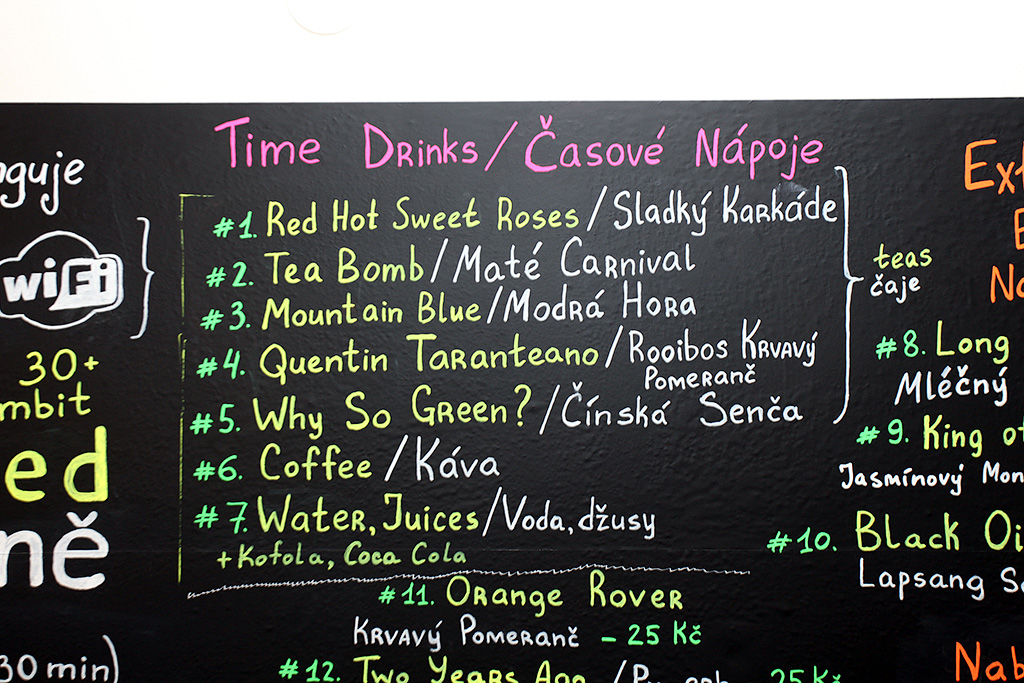 Time Drinks/Časové Nápoje
#1. Red Hot Sweet Roses/Sladký Karkáde
#2. Tea Bomb/Maté Carnival
#3. Mountain Blue/Modrá Hora
#4. Quentin Taranteano/Rooibos Krvavý
Pomeranč
#5. Why So Green?/Čínská Senča
#6. Coffee/Káva
#7. Water, Juices/Voda, džusy
+Kofola, Coca Cola
teas
čaje
#11. Orange Rover
Krvavý Pomeranč - 25 Kč
#12. Two Years Ago
WiFi
30+
30 min)
#8. Long
Mléčný
#9. King
Jasmínový
#10. Black
Lapsang